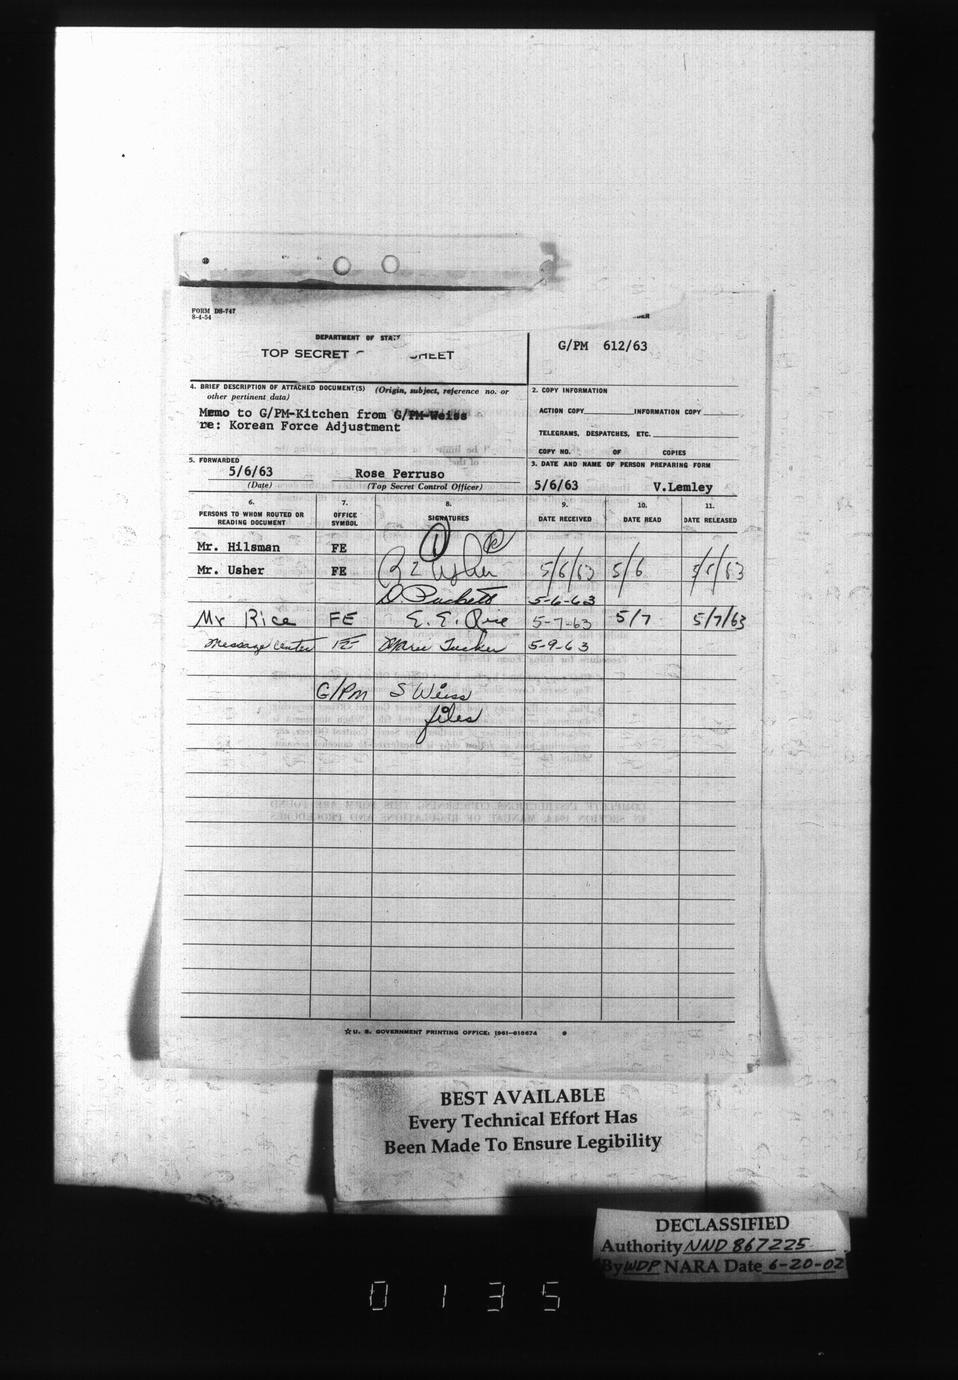 FORM DS-747
8-4-54
DEPARTMENT OF STAT
TOP SECRET HEET
G/PM 612/63
4. BRIEF DESCRIPTION OF ATTACHED DOCUMENT(S) (Origin, subject, reference no. or
other pertinent data)
Memo to G/PM-Kitchen from G/PM-Weiss
re: Korean Force Adjustment
2. COPY INFORMATION
ACTION COPY INFORMATION COPY
TELEGRAMS, DESPATCHES, ETC.
COPY NO. OF COPIES
5. FORWARDED
5/6/63 Rose Perruso
(Date) (Top Secret Control Officer)
3. DATE AND NAME OF PERSON PREPARING FORM
5/6/63 V.Lemley
6. 7. 8. 9. 10. 11.
PERSONS TO WHOM ROUTED OR READING DOCUMENT OFFICE SYMBOL SIGNATURES DATE RECEIVED DATE READ DATE RELEASED
Mr. Hilsman FE
Mr. Usher FE R Z Usher 5/6/63 5/6 5/6/63
D. Puckett 5-6-63
Mr Rice FE E. E. Rice 5-7-63 5/7 5/7/63
Message Center FE Marie Tucker 5-9-63
G/PM S Weiss
files
COMPLETE INSTRUCTIONS CONCERNING THIS FORM ARE FOUND
☆U. S. GOVERNMENT PRINTING OFFICE: 1961-610674
BEST AVAILABLE
Every Technical Effort Has
Been Made To Ensure Legibility
DECLASSIFIED
Authority NND 867225
By WDP NARA Date 6-20-02
0135